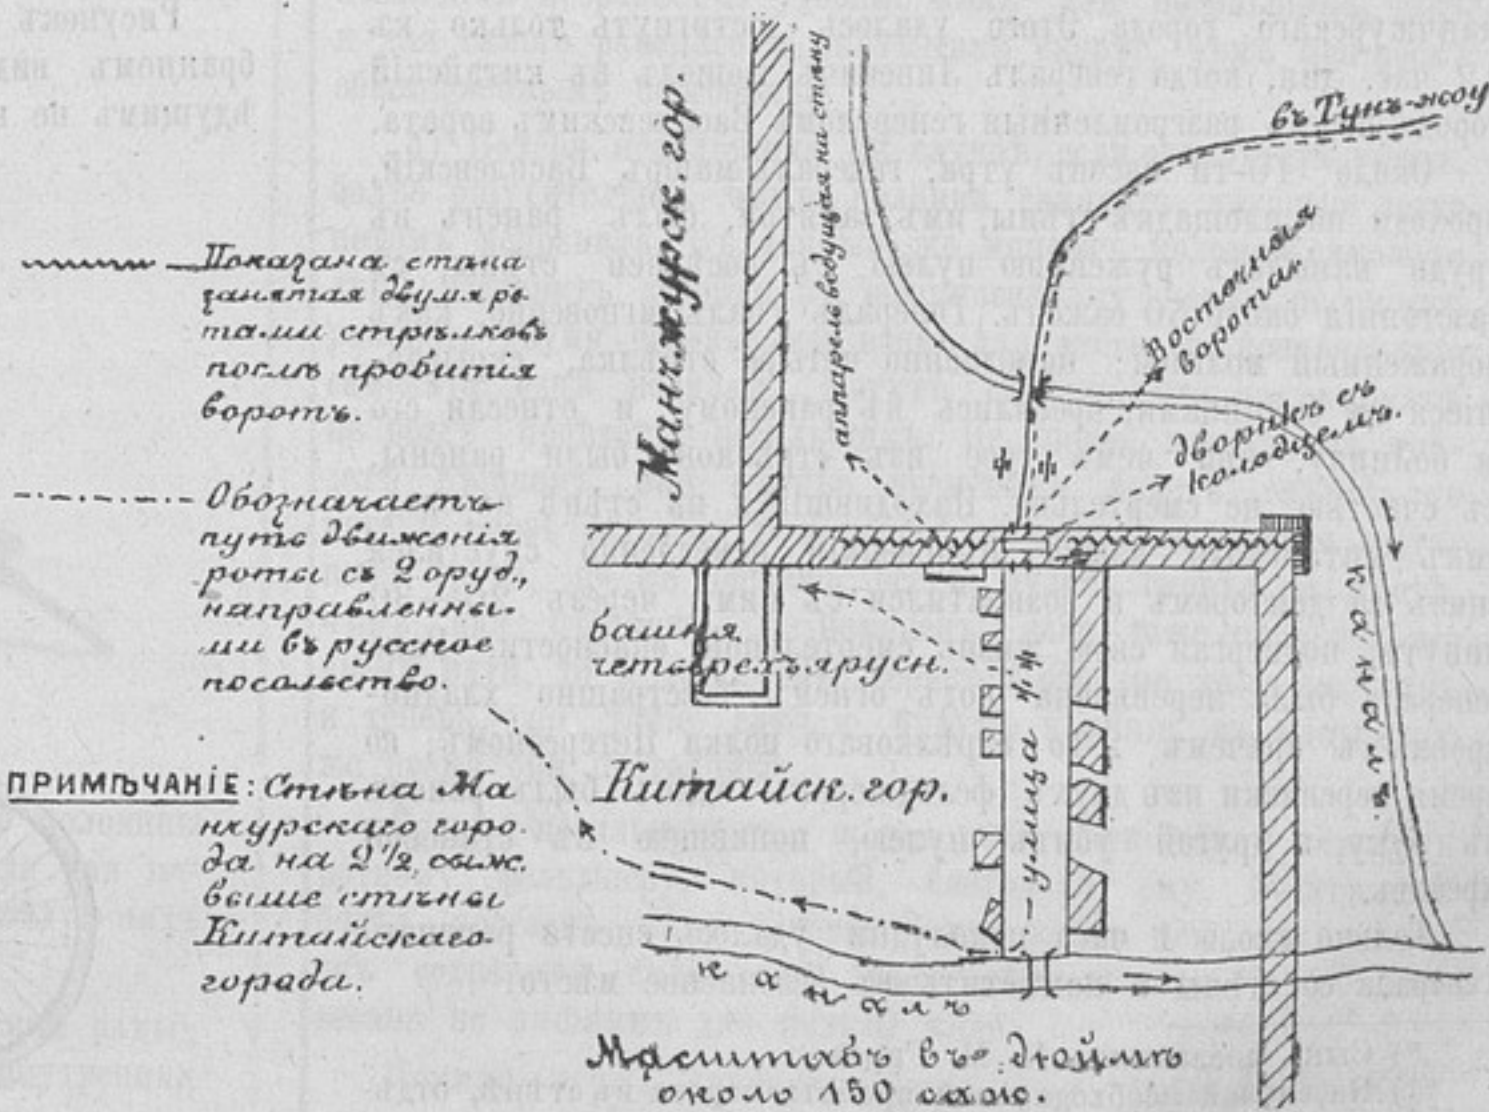 Показана стѣна
занятая двумя ро
тами стрѣлковъ
послѣ пробитія
воротъ.
Обозначаетъ
путь движенія
роты съ 2 оруд.,
направленны-
ми въ русское
посольство.
ПРИМѢЧАНІЕ: Стѣна Ма
нчурскаго горо-
да на 2 1/2 саж.
выше стѣны
Китайскаго
города.
Манъчжурск. гор.
аппарель ведущая на стѣну
въ Тунъ-жоу
Восточныя
ворота.
дворикъ съ
колодцемъ.
каналъ
башня
четверехъярусн.
улица
Китайск. гор.
каналъ
Масштабъ въ дюймѣ
около 150 саж.